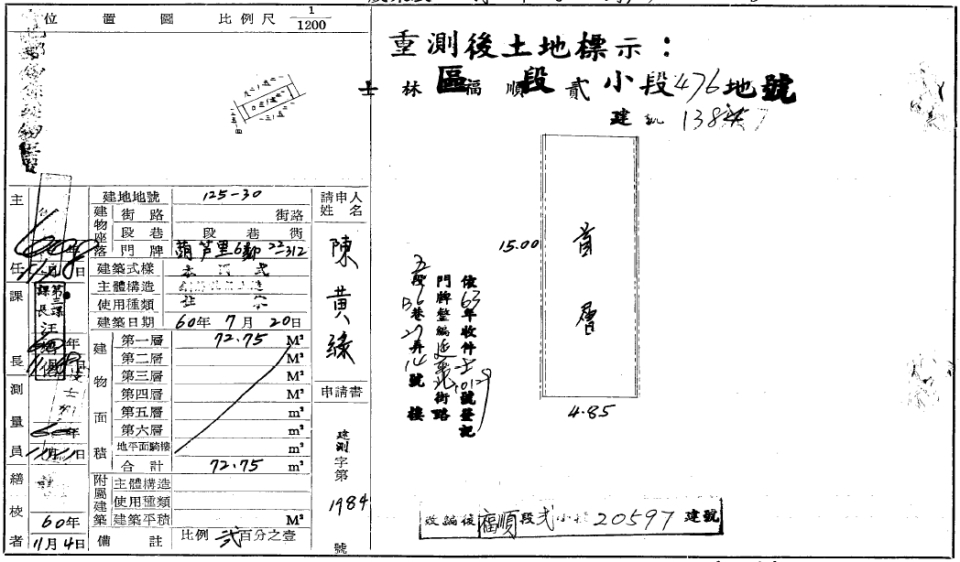 位置圖 比例尺 1/1200
重測後土地標示：
士林區福順段貳小段476地號
建號 1384
主任
課長
測量員
繕校者
建地地號 125-30
建物座落
街路 街路
段巷 段巷衖
門牌 葫芦里6鄰 312
建築式樣 本國式
主體構造
使用種類 住家
建築日期 60年7月20日
建物面積
第一層 72.75 M²
第二層 M²
第三層 M²
第四層 M²
第五層 m²
第六層 m²
地平面騎樓 m²
合計 72.75 m²
附屬建築
主體構造
使用種類
建築平積 M²
備註 比例 貳百分之壹
請申人姓名
陳黃綠
申請書
建測字第
1984
號
第二課課長汪
60年
11月4日
15.00
首層
4.85
依63年收件士 號登記
門牌整編延平北街路
五段 巷27弄14號 樓
改編後福順段弍小段20597建號